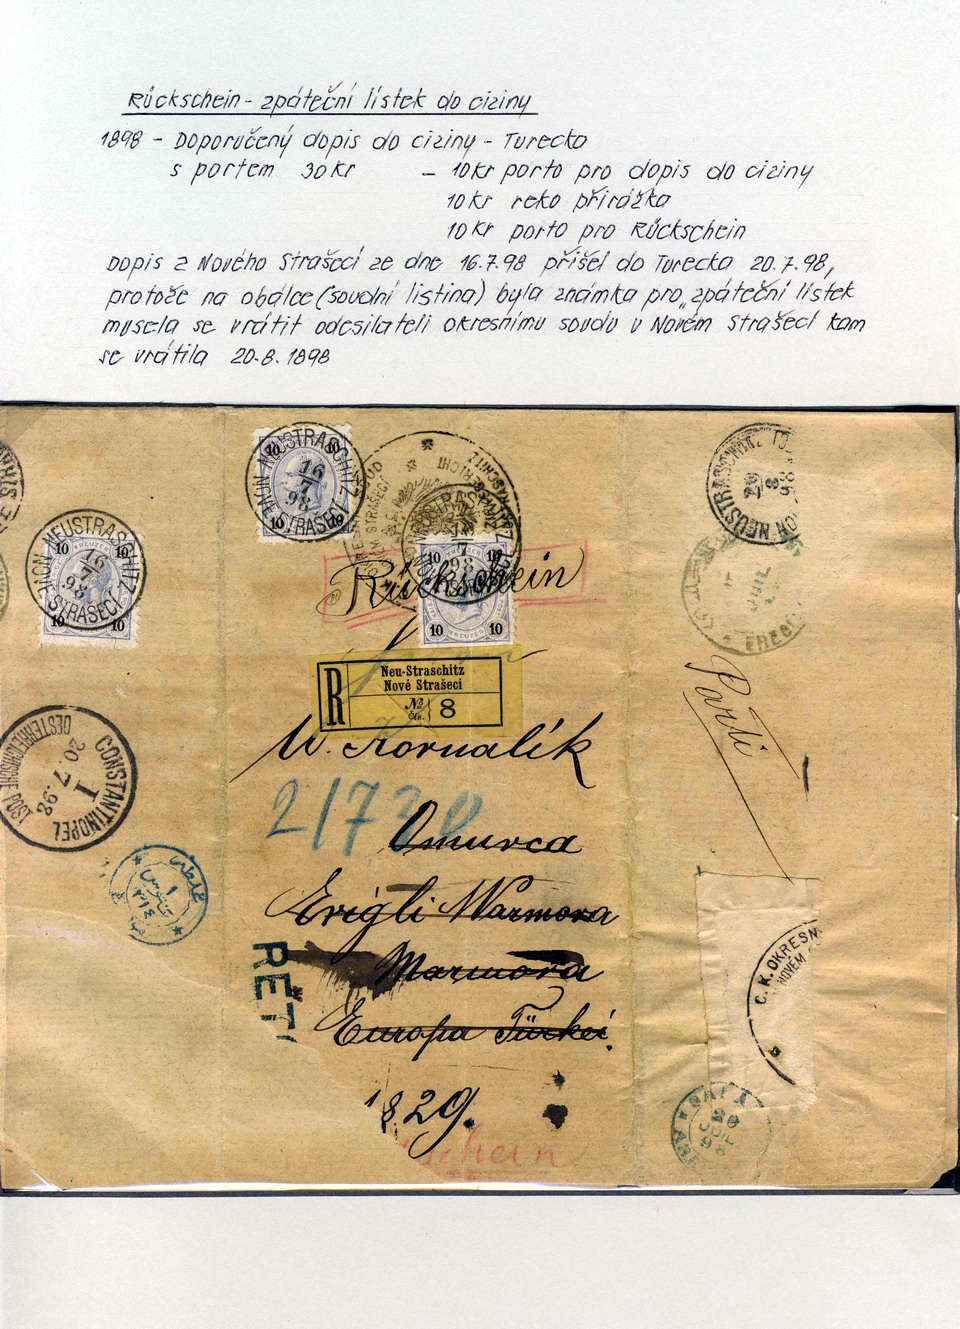 Rückschein - zpáteční lístek do ciziny
1898 - Doporučený dopis do ciziny - Turecko
s portem 30 kr - 10 kr porto pro dopis do ciziny
10 kr reko přirážka
10 kr porto pro Rückschein
Dopis z Nového Strašecí ze dne 16.7.98 přišel do Turecka 20.7.98,
protože na obálce (soudní listina) byla známka pro „zpáteční lístek
musela se vrátit odesilateli okresnímu soudu v Novém Strašecí kam
se vrátila 20.8.1898
NEUSTRASCHITZ
16
7
98
STRAŠECÍ
10 10
KREUZER
NEUSTRASCHITZ
16
7
98
STRAŠECÍ
10 10
10 10
KREUZER
Rückschein
R
Neu-Straschitz
Nové Strašecí
№
Čís.
8
W. Kornalík
2/730
Omurca
Erigli Marmora
Marmora
Europa Türkei.
1829.
schein
Parti
CONSTANTINOPEL
I
20.7.98
OESTERREICHISCHE POST
RET
NEUSTRASCHITZ
20
8
98
JUIL
C. K. OKRESN
NOVÉM
GALATA
20
JUIL
98